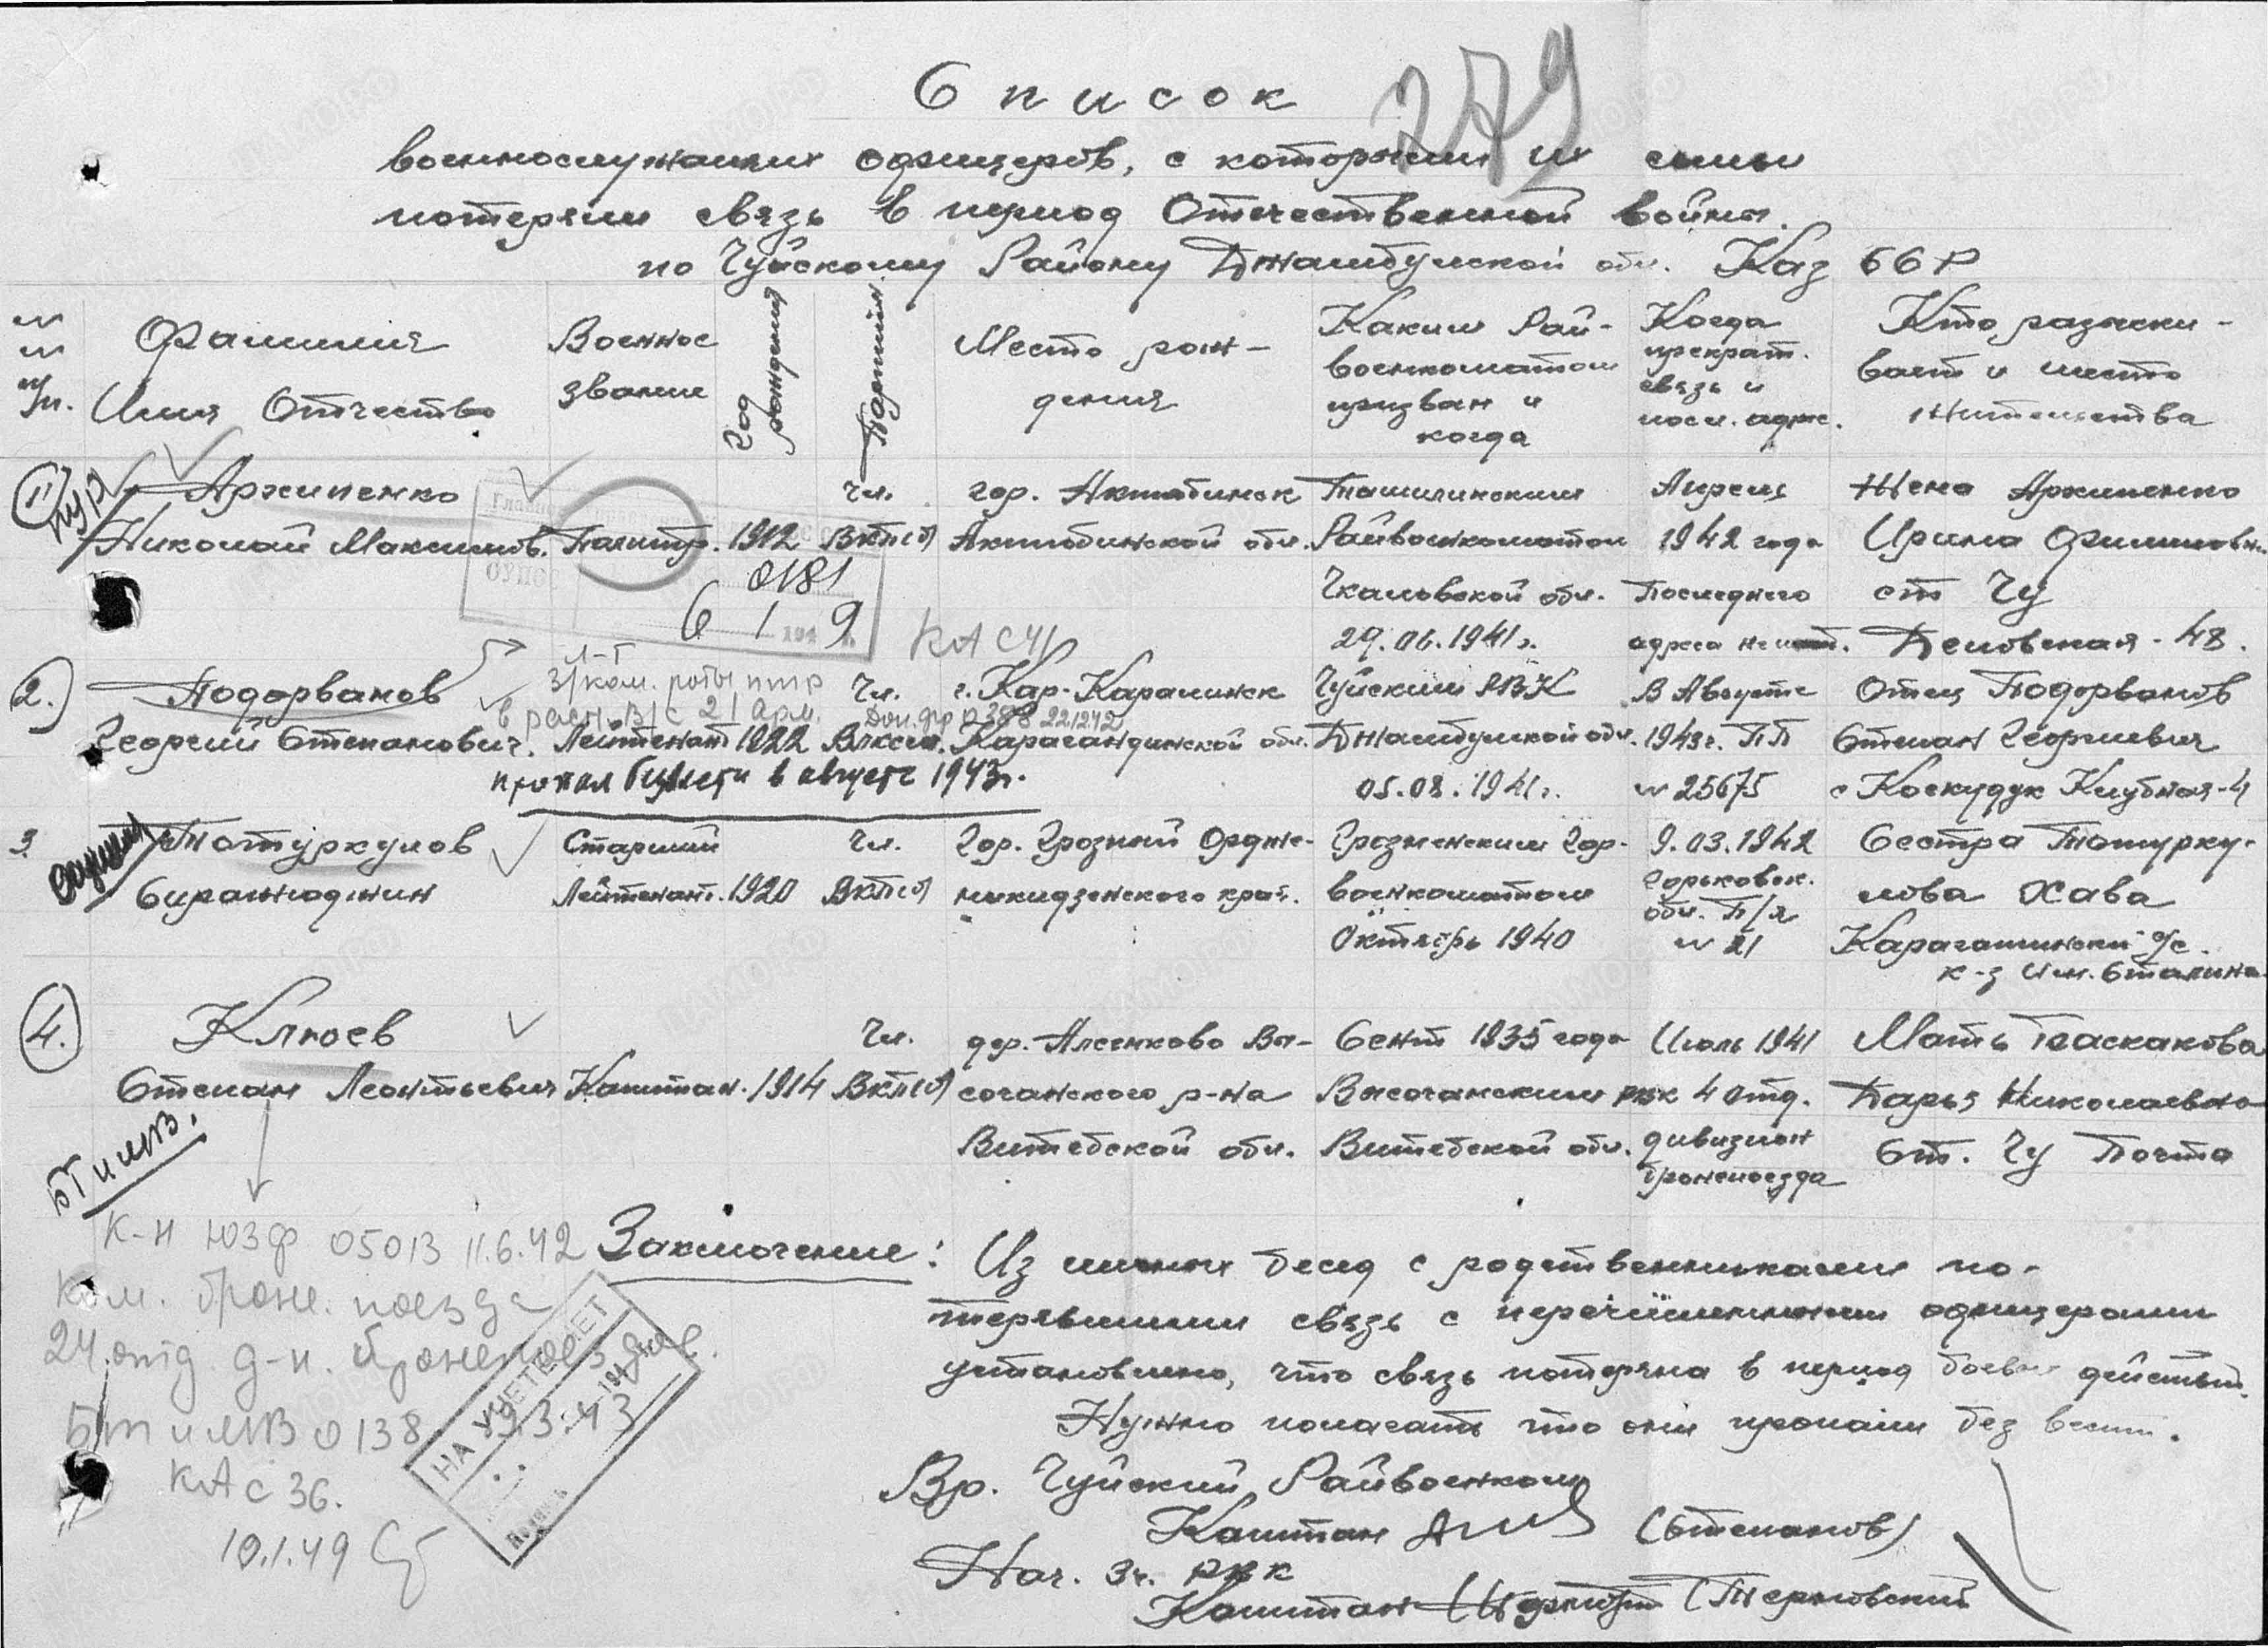 Список
279
военнослужащих офицеров, с которыми их семьи
потеряли связь в период Отечественной войны.
по Чуйскому Району Джамбулской обл. Каз ССР
№ № п/п.
Фамилия Имя Отчество
Военное звание
Год рождения
Партийн.
Место рождения
Каким Рай-
военкоматом
призван и
когда
Когда
прекрат.
связь и
посл. адрес.
Кто разыски-
вает и место
жительства
1
Архипенко
Николай Максимов.
Политр.
1912
чл.
ВКП(б)
гор. Актюбинск
Актюбинской обл.
Райвоенкоматом
Чкаловской обл.
29.06.1941г.
Апрель
1942 года
Последнего
адреса
Жена Архипенко
Ирина Филиповн.
ст Чу
Деповская - 48.
ОУПСС
0181
6 1 1949
КА С 41
2.)
Подорванов
Георгий Степанович.
л-т
з/ком. роты птр
в расп. В/С 21 Арм.
Дон. фр
Лейтенант
1922
Чл.
Влксм.
г. Кар-Каралинск
Карагандинской обл.
Чуйским РВК
Джамбулской обл.
05.08.1941г.
В Августе
1943г. ПП
№ 25675
Отец Подорванов
Степан Георгиевич
с Коскудук Клубная-4
пропал без вести в августе 1943г.
3.
Потуркулов
Сиражюджин
Старший
Лейтенант.
1920
Чл.
ВКП(б)
Гор. Грозный Орджо-
никидзенского края.
Грозненским Гор-
военкоматом
Октябрь 1940
9.03.1942
Горьковск.
обл. П/Я
№ 21
Сестра Потурку-
лова Хава
Карагашински с/с
к-з им. Сталина
4.
Клюев
Степан Леонтьевич
Капитан.
1914
Чл.
ВКП(б)
дер. Алсенково Вы-
сочанского р-на
Витебской обл.
Сент 1935 года
Высочанским рвк
Витебской обл.
Июль 1941
4 отд.
дивизион
Бронепоезда
Мать
Дарья Николаевна
Ст. Чу Почта
БТ и МВ.
к-н ЮЗФ 05013 11.6.42
ком. броне. поезда
24 отд д-н. бронепоездов.
БТ и МВ 0138 19.3.43
КА с 36.
10.1.49
НА УЧЕТЕ НЕТ
Заключение: Из личных бесед с родственниками по-
терявшими связь с перечисленными офицерами
установлено, что связь потеряна в период боевых действий.
Нужно полагать что они пропали без вести.
Вр. Чуйский Райвоенком
Капитан (Степанов)
Нач. 3ч. РВК
Капитан (Терновский